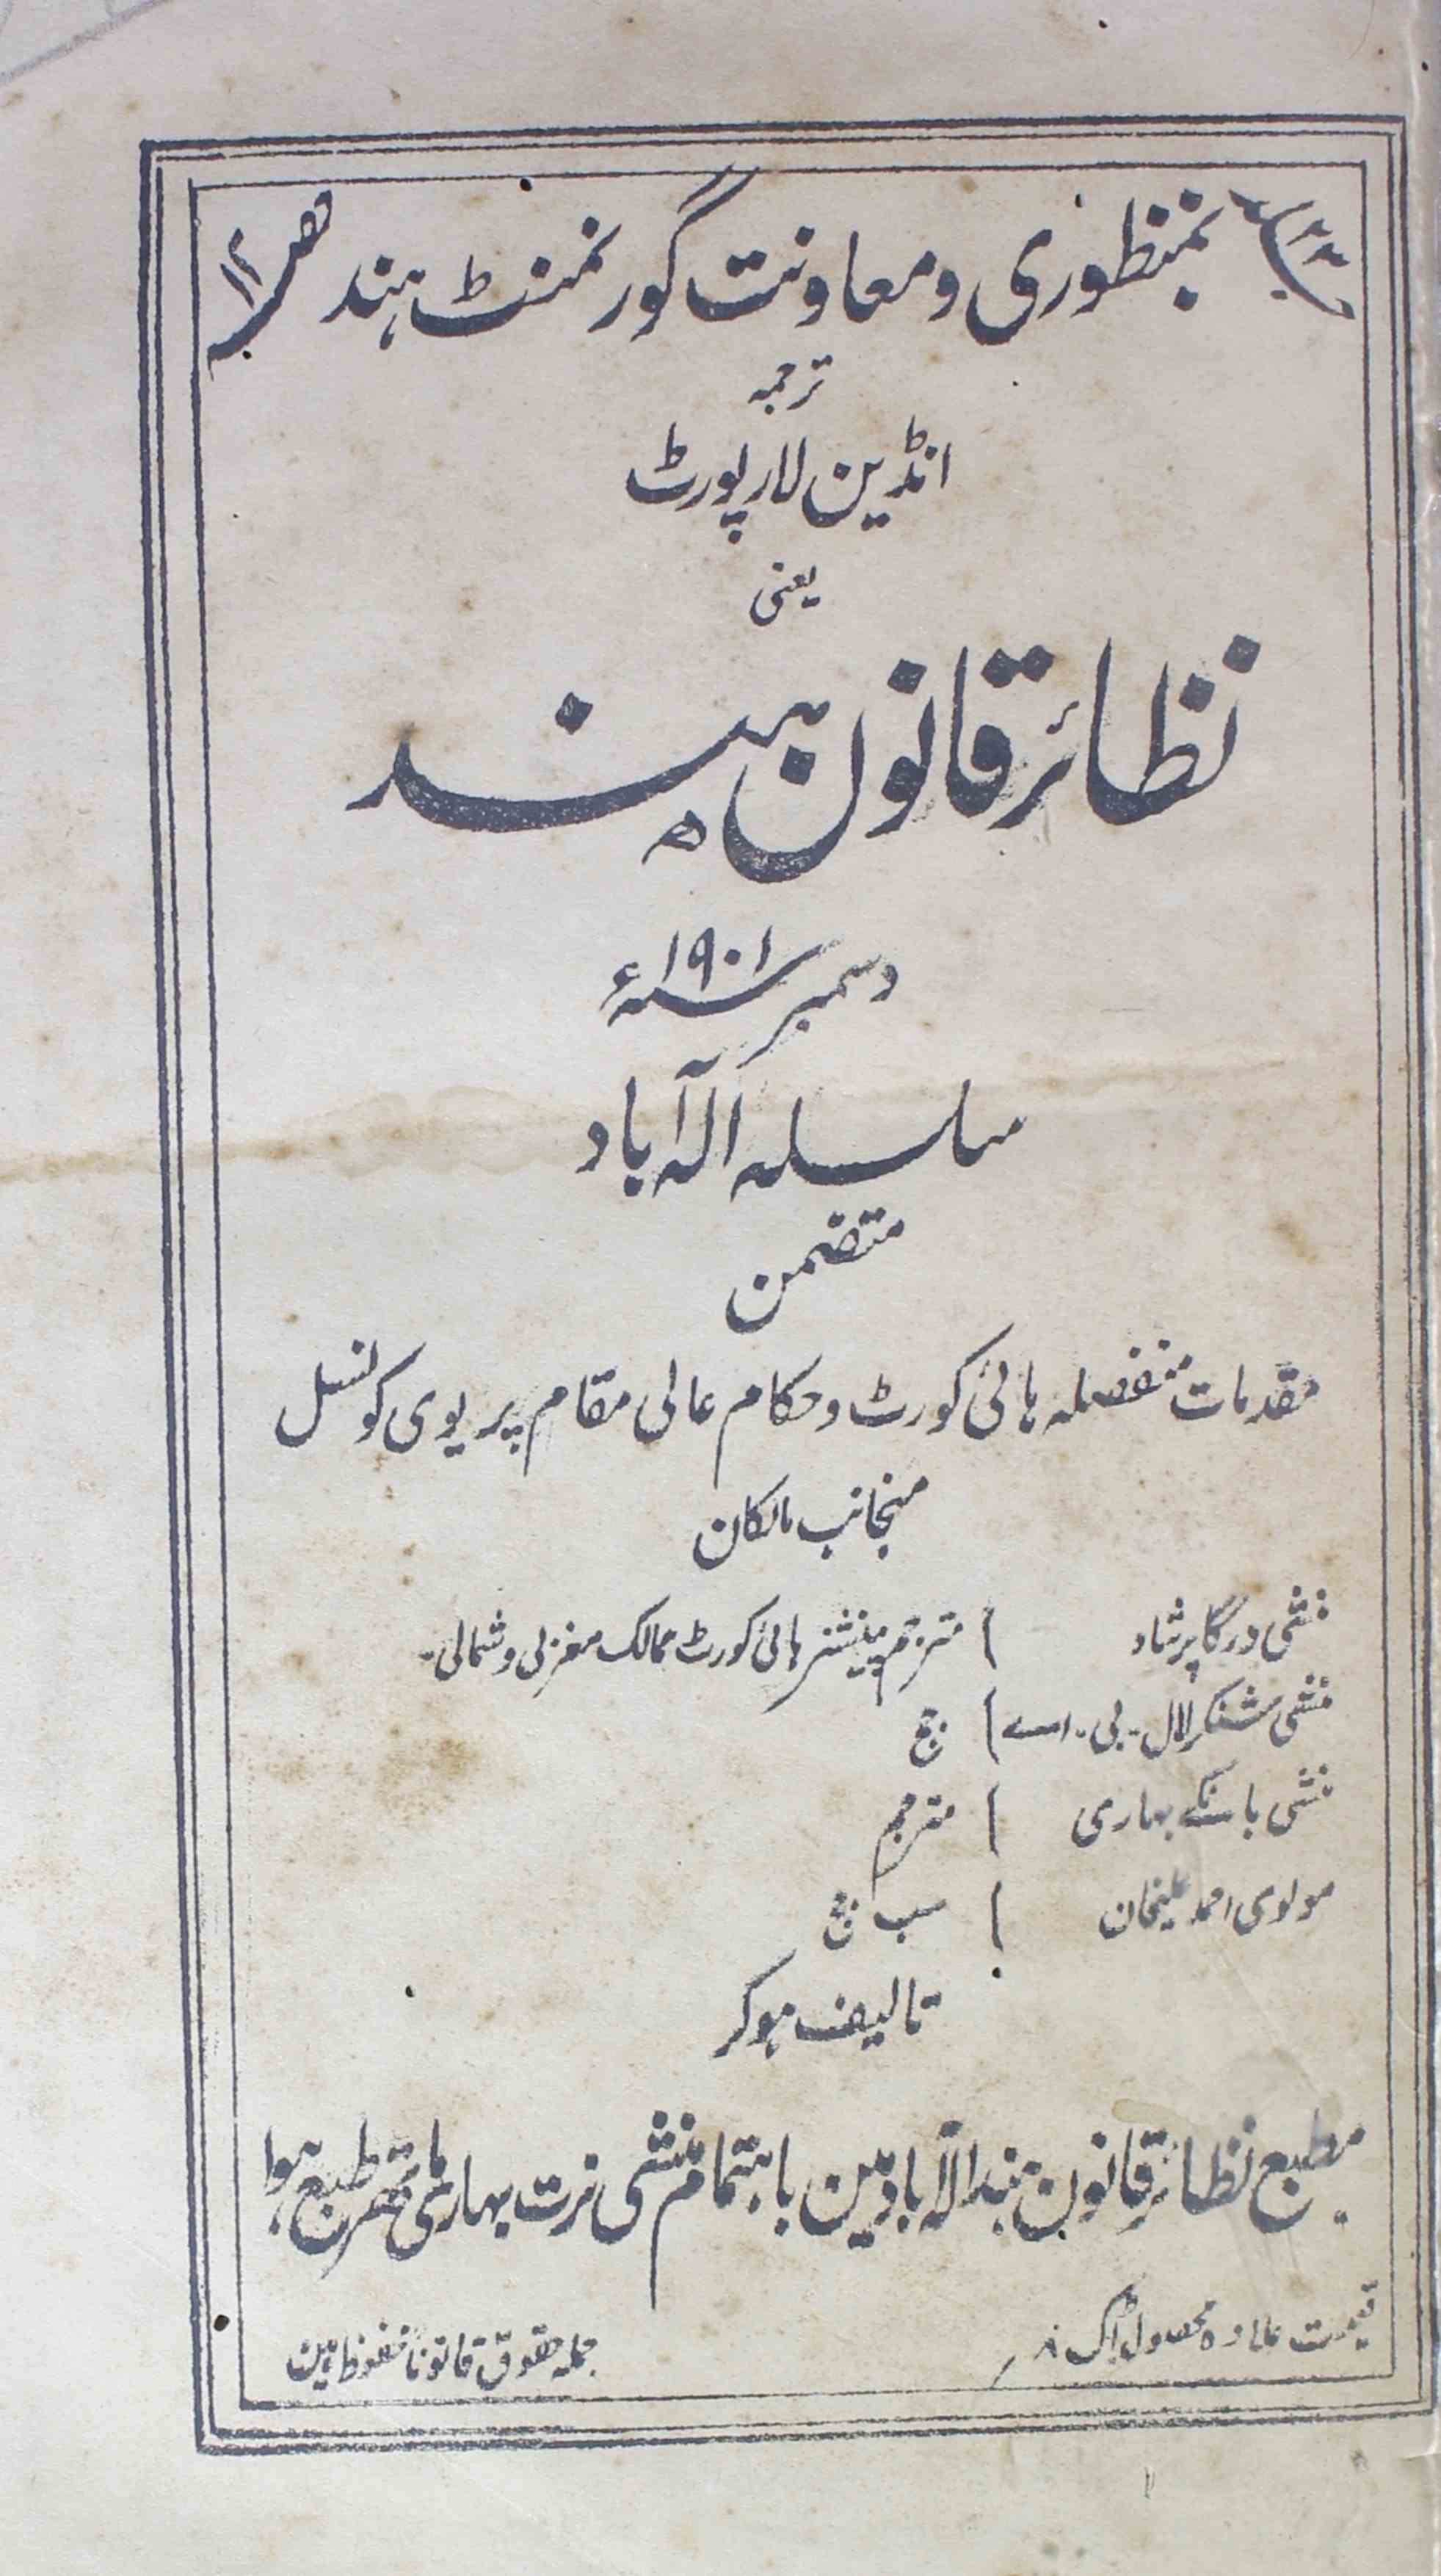 بمنظوری و معاونت گورنمنٹ ہند
ترجمہ
انڈین لا رپورٹ
یعنی
نظائر قانون ہند
دسمبر سنہ ۱۹۰۱ء
سلسلہ الہ آباد
متضمن
مقدمات منفصلہ ہائی کورٹ و حکام عالی مقام پریوی کونسل
منجانب مالکان
منشی درگا پرشاد ) مترجم پینشنر ہائی کورٹ ممالک مغربی و شمالی۔
منشی شنکر لال۔ بی۔ اے ) جج
منشی بانکے بہاری ) مترجم
مولوی احمد علیخان ) سب جج
تالیف ہوکر
مطبع نظائر قانون ہند الہ آباد مین باہتمام منشی نرت بہاری ماتھر طبع ہوا
قیمت علاوہ محصول ڈاک ۸؍
جملہ حقوق قانوناً محفوظ ہین